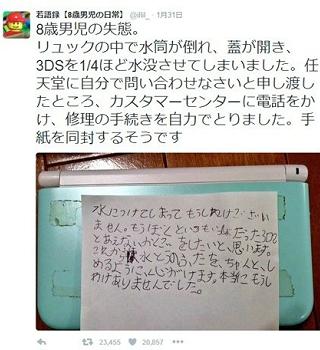 若語録【8歳男児の日常】 1月31日
8歳男児の失態。
リュックの中で水筒が倒れ、蓋が開き、
3DSを1/4ほど水没させてしまいました。任
天堂に自分で問い合わせなさいと申し渡し
たところ、カスタマーセンターに電話をか
け、修理の手続きを自力でとりました。手
紙を同封するそうです
水につけてしまってもうしわけございい
ません。もうぼくといつもいっしょだった3DS
とあえないかと
をしたいと、思います。
これから水とうのふたを、ちゃんと、し
めるように、心がけます。本当にもうし
わけありませんでした。
23,455
20,857